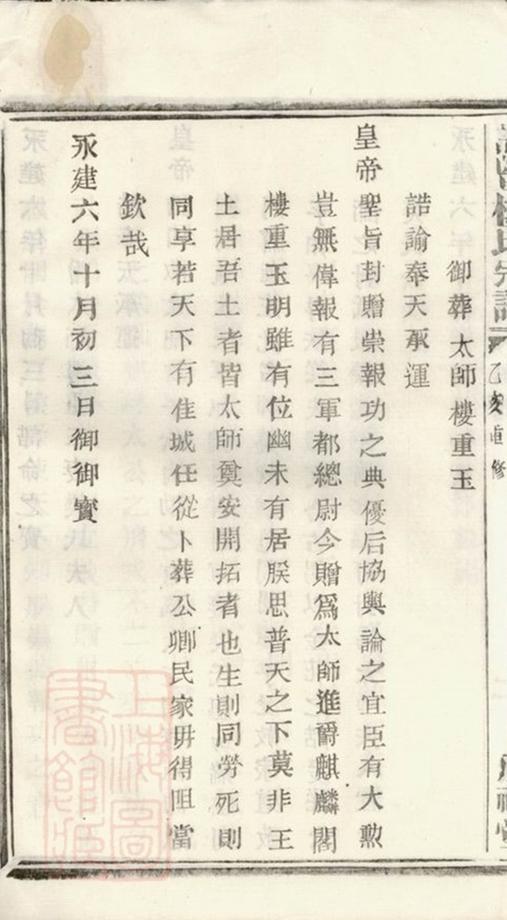 乙亥重修
御葬太師樓重玉
誥諭奉天承運
皇帝聖旨封贈崇報功之典優后協輿論之宜臣有大勲
豈無偉報有三軍都總尉今贈爲太師進爵麒麟閣
樓重玉明雖有位幽未有居朕思普天之下莫非王
土居吾土者皆太師奠安開拓者也生則同勞死則
同享若天下有佳城任從卜葬公卿民家毋得阻當
欽哉
永建六年十月初三日御御寳
上海圖
書館藏